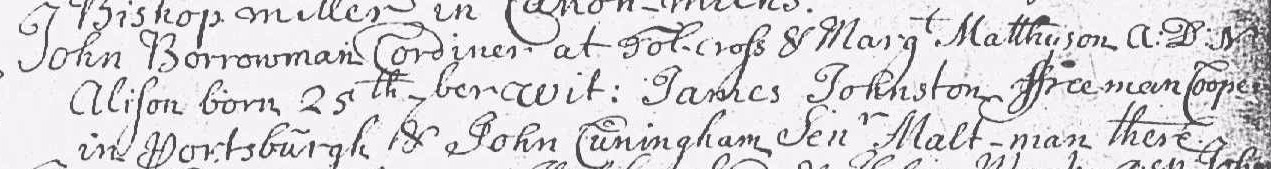 J Bishop miller in Canon-mills.
John Borrowman Cordiner at Tol-cross & Margt Mathyson A:D: N
Alison born 25th -ber wit: James Johnston ffreeman Cooper
in Portsburgh & John Cuningham Senr Malt-man there.